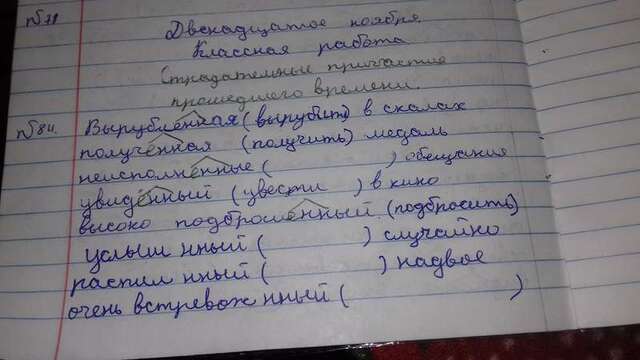 Двенадцатое ноября.
Классная работа
Страдательные причастие
прошедшего времени.
Вырубленная (вырубить) в скалах
полученная (получить) медаль
неисполненные ( ) обещания
увиденный (увести ) в кино
высоко подброшенный (подбросить)
услыш нный ( ) случайно
распил нный ( ) надвое
очень встревож нный ( )